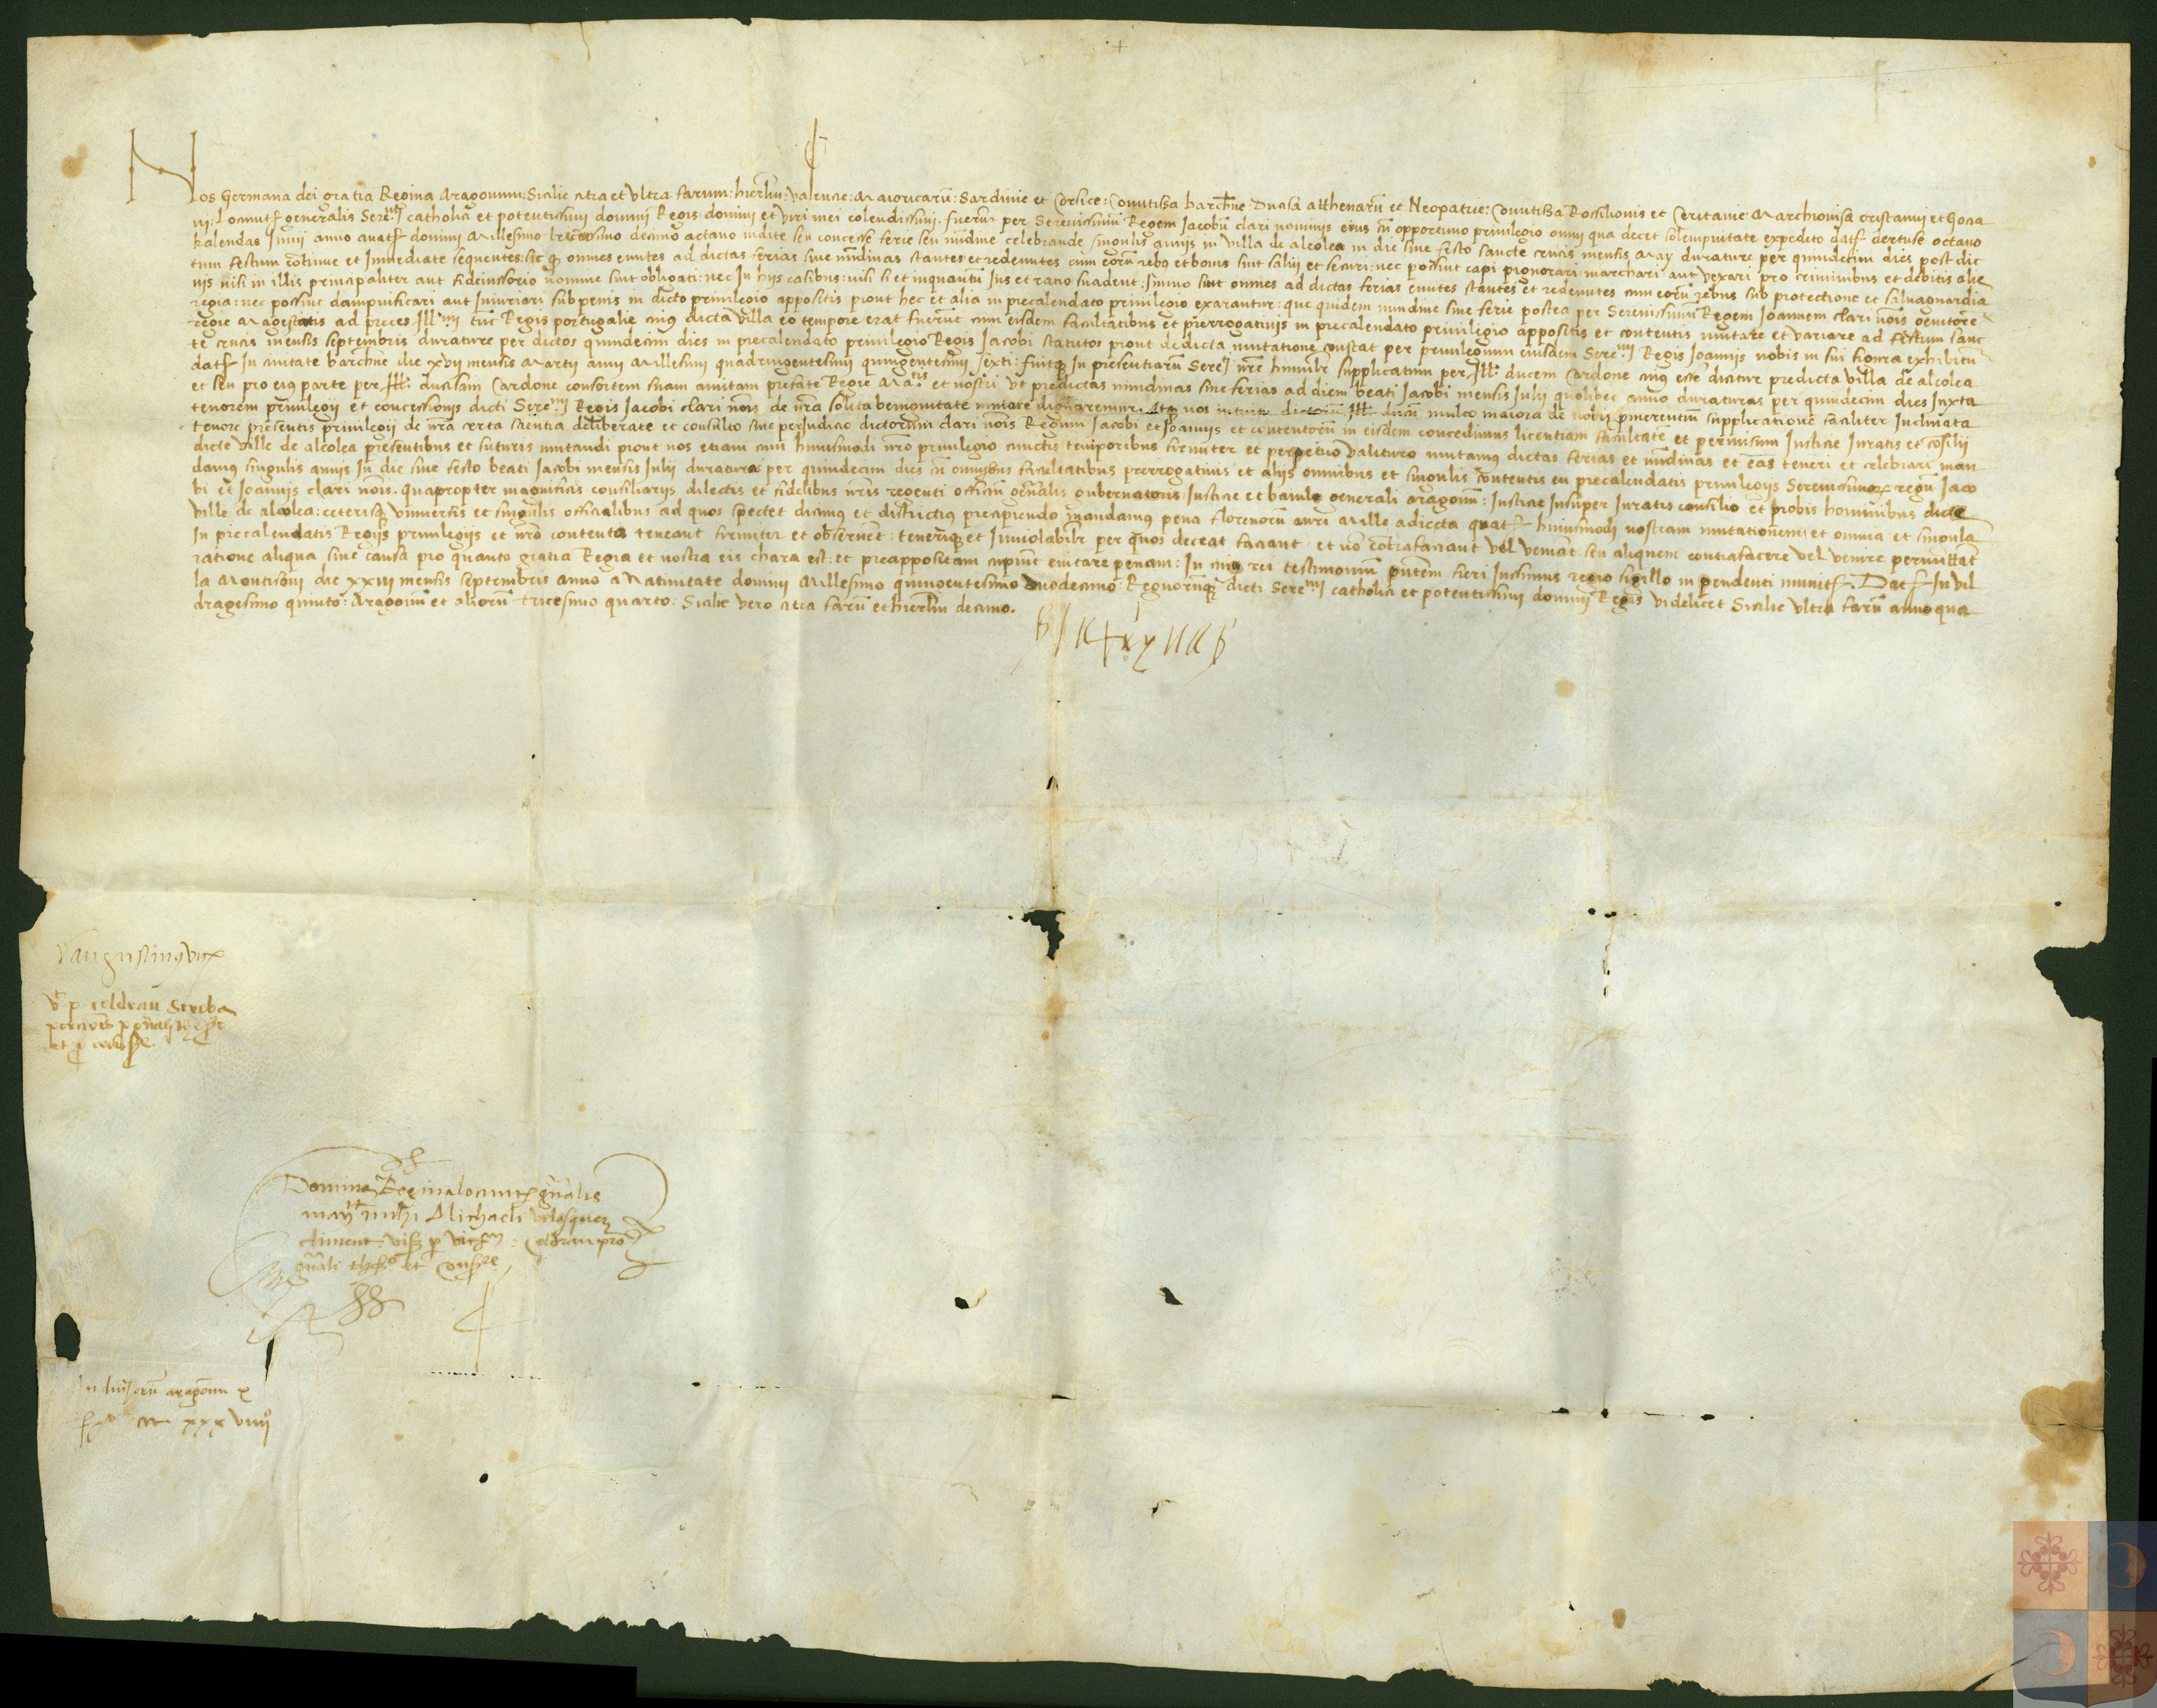 Nos Germana dei gratia Regina Aragonum: Sicilie citra et Ultra farum: hierlm: valencie: Maioricarũ: Sardinie et Corsice: Comitissa barchñe Ducissa atthenarũ et Neopatrie: Comitissa Rossilionis et Ceritanie Marchionisa oristanni et Gocia
ni: Locumt generalis Sere.mi catholici et potentissimi domini Regis domini et viri mei colendissimi. fuerũt per Serenissimũ Regem Jacobũ clari nominis eius cũ opportuno privilegio omni qua decet solempnitate expedito dat dertuse octavo
kalendas Junii anno a nat domini Millesimo tricesimo decimo octavo indite seu concesse ferie seu nũdine celebrande singulis annis in villa de alcolea in die sive festo sancte crucis mensis May durature per quindecim dies post dic
tum festum cõtinue et Immediate sequentes: sic q omnes euntes ad dictas ferias sive nũdinas stantes et redeuntes cum eorũ rebus et bonis sint salvi et securi: nec possint capi pignorari marchari aut vexari pro criminibus et debitis alie
nis nisi in illis principaliter aut fideiussorio nomine sint obligati: nec In hys casibus: nisi si et inquantũ Jus et ratio suadent. Immo sint omnes ad dictas ferias euntes stantes et redeuntes cum eorũ rebus sub protectione et salvaguardia
regia: nec possint dampnificari aut Iniuriari sub penis in dicto privilegio appositis prout hec et alia in precalendato privilegio exarantur: que quidem nundine sive ferie postea per Serenissimũ Regem Joannem clari nõis genitore
regie Magestatis ad preces Ill.mi tũc Regis portugalie cuius dicta villa eo tempore erat fuerunt cum eisdem facultatibus et prerrogativis in precalendato privilegio appositis et contentis mutate et variate ad festum sanc
te crucis mensis septembris durature per dictos quindecim dies in precalendato privilegio Regis Jacobi statutos prout de dicta mutatione constat per privilegium eiusdem Sere.mi Regis Joannis nobis in sui figura exhibitũ
dat In civitate barchñe die xvii mensis Martii anni Millesimi quadringentesimi quingentesimi sexti: fuitq In presentiarũ Sereti nre humilr supplicatum per Ill. ducem Cardone cuius esse dicitur predicta villa de alcolea
et seu pro eius parte per Ill. ducissam Cardone consortem suam amitam prefate Regie Ma.tis et nostri Ut predictas nundinas sive ferias ad diem beati Jacobi mensis Julii quolibet anno duraturas per quindecim dies Juxta
tenorem privilegii et concessionis dicti Sere.mi Regis Jacobi clari nõis de nra solita benignitate mutare dignaremur. Itaq nos intuitu dictorũ Ill. ducũ multo maiora de nobis promerentiũ supplicatione faciliter Inclinata
tenore presentis privilegii de nra certa scientia deliberate et consulto sine perjudicio dictorum clari nõis Regum Jacobi et Joannis et contentorũ in eisdem concedimus licentiam facultatẽ et permissum Justicie Juratis et cõsilii
dicte ville de alcolea presentibus et futuris mutandi prout nos etiam cum huiusmodi nro privilegio cunctis temporibus firmiter et perpetuo valituro mutamus dictas ferias et nũdinas et eas teneri et celebrari man
damus singulis annis In die sive festo beati Jacobi mensis Julii duratura per quindecim dies cũ omnibus facultatibus prerrogativis et aliis omnibus et singulis contentis en precalendatis privilegiis Serenissimor regũ Jaco
bi et Joannis clari nõis. quapropter magnificis consiliariis dilectis et fidelibus nris regenti officiũ gñalis gubernatoris Justicie et baiulo generali aragonũ: Justicie Insuper Juratis consilio et probis hominibus dicte
ville de alcolea: ceterisq universis et singulis officialibus ad quos spectet dicimus et districtius precipiendo mandamus pena florenorũ auri Mille adiecta quat huiusmodi nostram mutationem et omnia et singula
In precalendatis Regiis privilegiis et nro contenta teneant firmiter et observent: tenerique et Inviolabilr per quos deceat faciant: et nõ cõtrafaciant vel veniãt seu aliquem contrafacere vel venire permittant
ratione aliqua sive causa pro quanto gratia Regia et nostra eis chara est: et preappositam cupiunt evitare penam: In cuius rei testimonium pñtem fieri Jussimus regio sigillo in pendenti munit. Dat In vil
la Montissoni die xxiii mensis septembris anno a Nativitate domini Millesimo quingentesimo duodecimo Regnorumq dicti Sere.mi catholici et potentissimi domini Regis videlicet Sicilie ultra farũ anno qua
dragesimo quinto: Aragonũ et aliorũ tricesimo quarto: Sicilie vero citra farũ et hierlm decimo.
vt augustinus vicx
vt p coldran Scriba
Domina Regina locumt gñalis
mant mihi Michaeli velasquez
climent: visa p vicx: coldran pro
gñali thes et cons
In diversorũ aragonũ x
xxx viiii